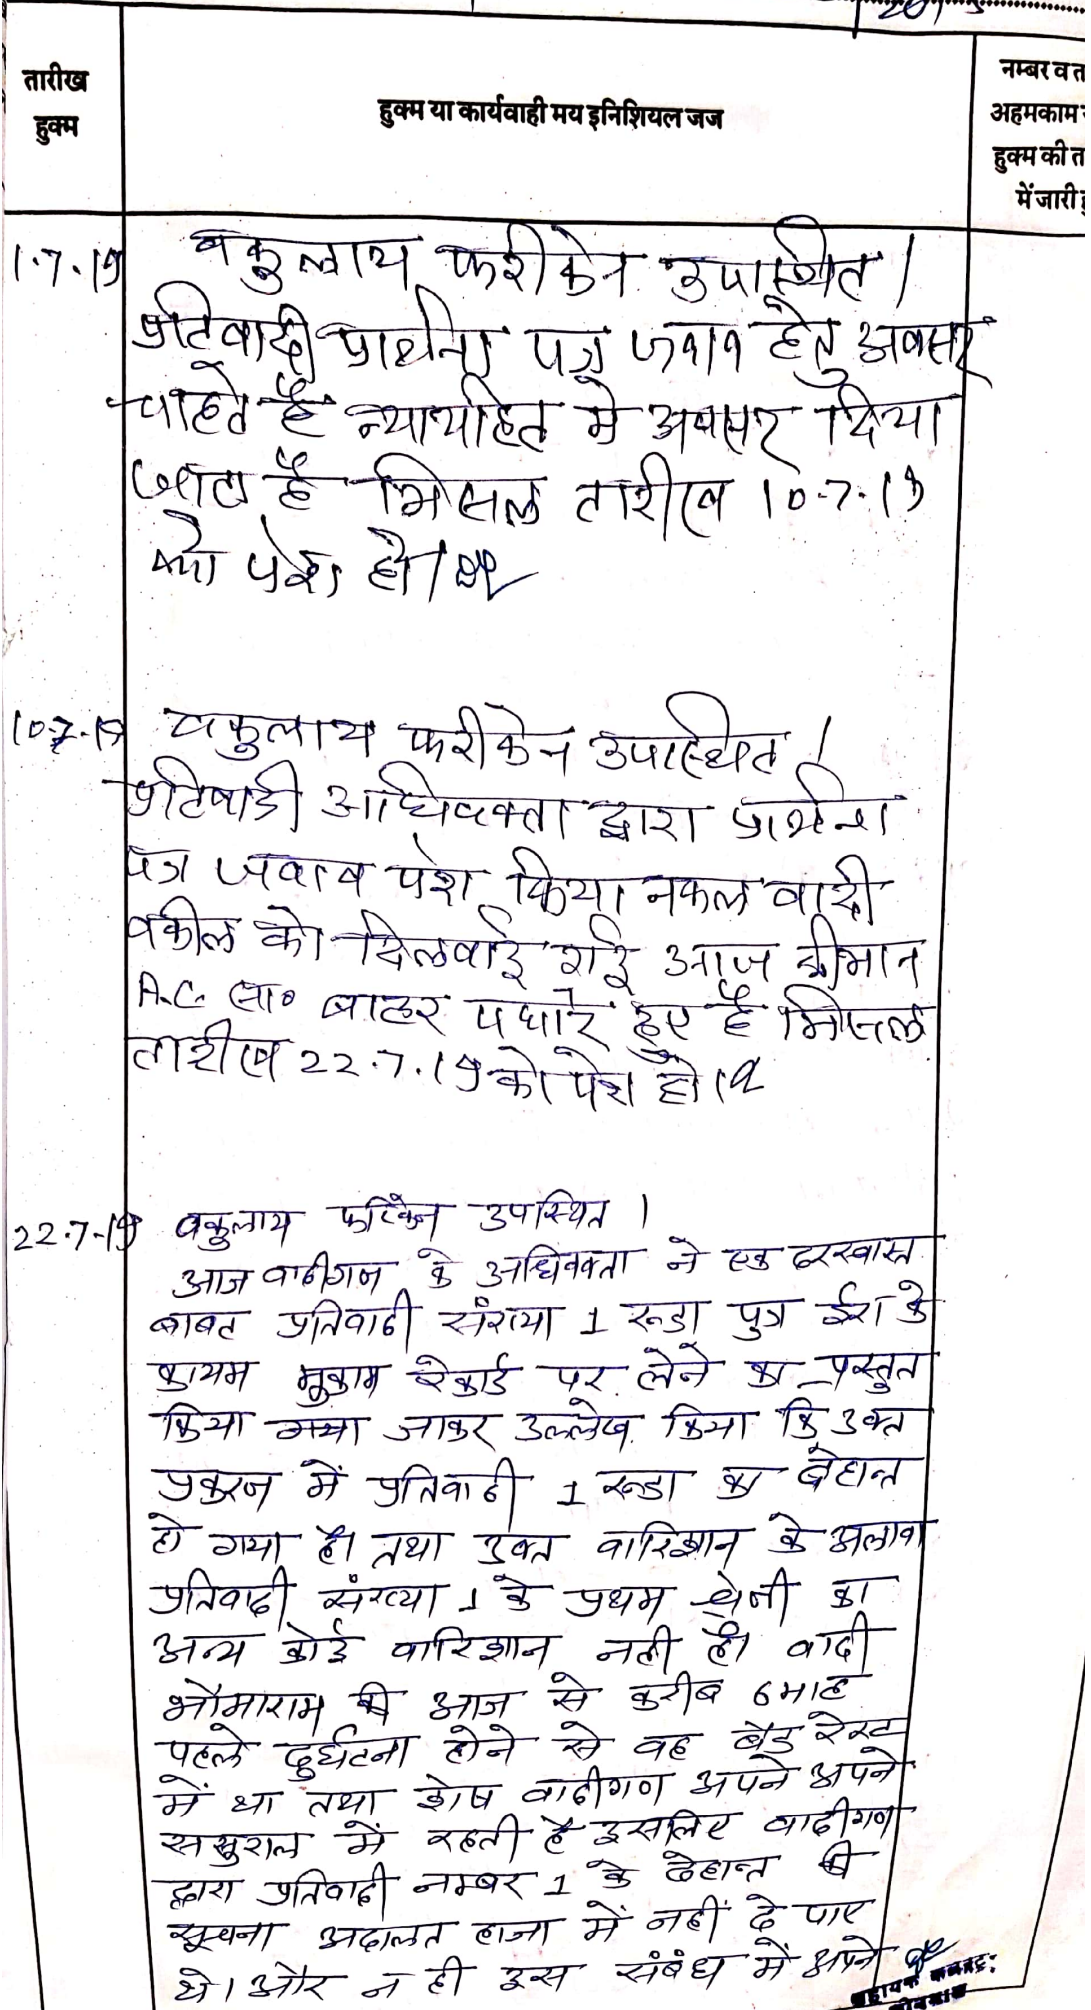 तारीख
हुक्म
हुक्म या कार्यवाही मय इनिशियल जज
नम्बर व त
अहमकाम
हुक्म की त
में जारी
1.7.19 वकुलाय फरीकेन उपास्थित।
प्रतिवादी प्रार्थना पत्र जवाब हेतु अवसर
चाहते है न्यायहित मे अवसर दिया
जाता है मिसल तारीख 10.7.19
को पेश हो।
10.7.19 वकुलाय फरीकेन उपास्थित।
प्रतिवादी आधिवक्ता द्वारा प्रार्थना
पत्र जवाब पेश किया नकल वादी
वकील को दिलवाई गई आज श्रीमान
A.C. सा० बाहर पधारे हुए है मिसल
तारीख 22.7.19 को पेश हो।
22.7.19 वकुलाय फरिकेन उपस्थित।
आज वादीगण के अधिवक्ता ने एक दरख्वास्त
बाबत प्रतिवादी संख्या 1 रूडा पुत्र ईरा के
कायम मुकाम रेकार्ड पर लेने का प्रस्तुत
किया गया जाकर उल्लेख किया कि उक्त
प्रकरण में प्रतिवादी 1 रूडा का देहान्त
हो गया है। तथा उक्त वारिशान के अलावा
प्रतिवादी संख्या 1 के प्रथम श्रेणी का
अन्य कोई वारिशान नही है। वादी
भोमाराम की आज से करीब 6 माह
पहले दुर्घटना होने से वह बैड रेस्ट
में था तथा शेष वादीगण अपने अपने
ससुराल में रहती है इसलिए वादीगण
द्वारा प्रतिवादी नम्बर 1 के देहान्त की
सूचना अदालत हाजा में नहीं दे पाए
थे। और न ही इस संबंध में अपने
सहायक कलक्टर